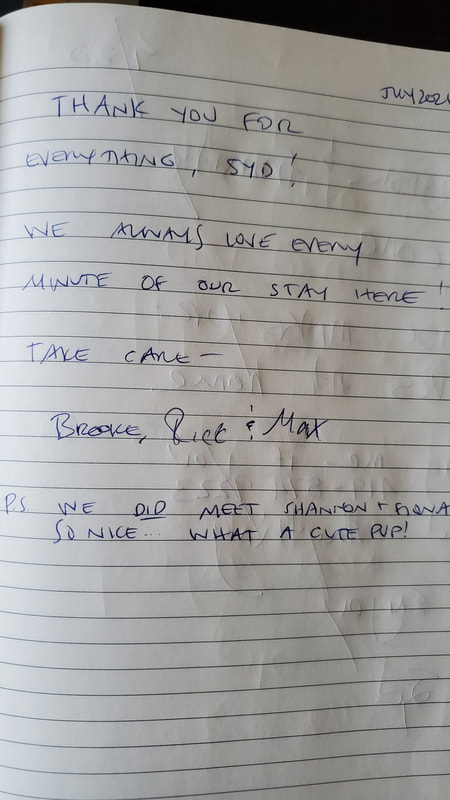 JULY 2021
THANK YOU FOR
EVERYTHING, SYD!
WE ALWAYS LOVE EVERY
MINUTE OF OUR STAY HERE!
TAKE CARE —
BROOKE, Rick & Max
P.S. WE DID MEET SHANNON + FIONA
SO NICE... WHAT A CUTE PUP!